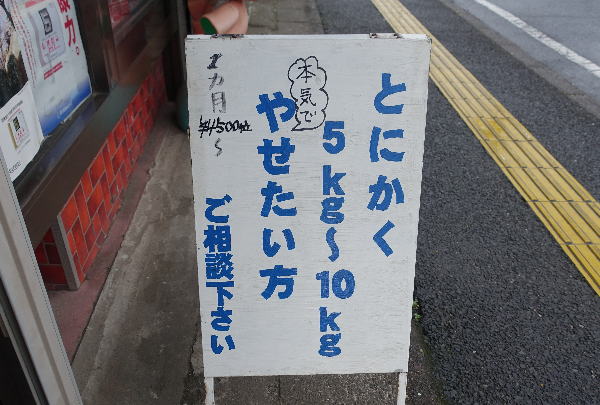 とにかく
5kg〜10kg
本気で
やせたい方
ご相談下さい
1カ月
¥4500位
〜